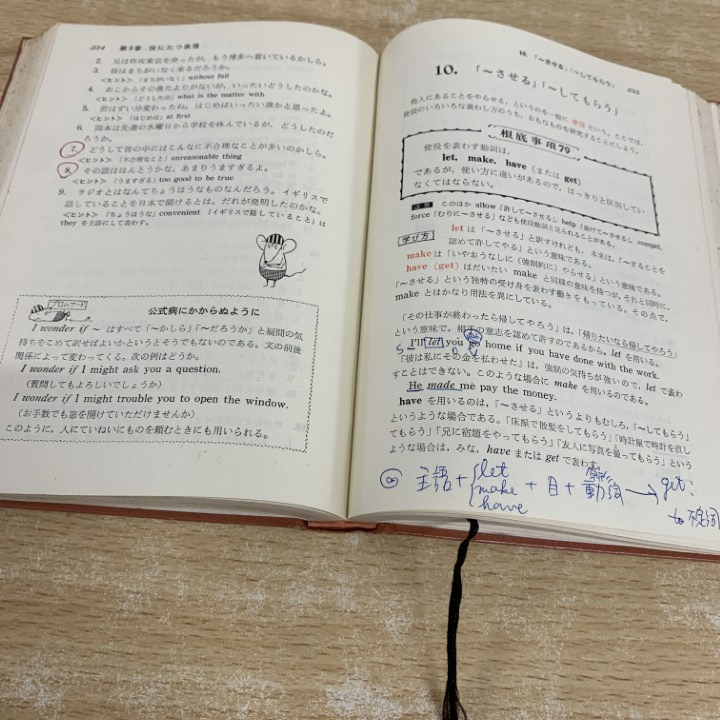 254 第8章 役にたつ表現
2. 兄は昨夜東京を発ったが，もう博多へ着いているかしら。
3. 彼はまちがいなく来るだろうか。
<ヒント>「まちがいなく」without fail
4. おじからその後たよりがないが，いったいどうしたのかな。
<ヒント>「どうしたの」what is the matter with
5. 君はずいぶん変わったね。はじめはいったい誰かと思ったよ。
<ヒント>「はじめは」at first
6. 岡本は先週の水曜日から学校を休んでいるが，どうしたのだ
ろうか。
7. どうして世の中にはこんなに不合理なことが多いのかしら。
<ヒント>「不合理なこと」unreasonable thing
8. その話はほんとうかな。あまりうますぎるよ。
<ヒント>「うますぎる」too good to be true
9. ラジオとはなんてちょうほうなものなんだろう。イギリスで
話していることを日本で聞けるとは。だれが発明したのかな。
<ヒント>「ちょうほうな」convenient 「イギリスで話していること」は
they を主語にして表わす。
プロムナード
公式病にかからぬように
I wonder if ～ はすべて「～かしら」「～だろうか」と疑問の気
持ちをこめて訳せばよいかというとそうでもないのである。文の前後
関係によって変わってくる。次の例はどうか。
I wonder if I might ask you a question.
（質問してもよろしいでしょうか）
I wonder if I might trouble you to open the window.
（お手数でも窓を開けていただけませんか）
このように，人にていねいにものを頼むときにも用いられる。
10. 「～させる」「～してもらう」 255
10. 「～させる」「～してもらう」
他人にあることをやらせる，というのを一般に 使役 という。ここでは，
使役のいろいろな表わし方のうち，おもなものを研究することにしよう。
根底事項79
使役を表わす動詞は，
let, make, have（または get）
であるが，使い方に違いがあるので，はっきりと区別してい
なくてはならない。
このほか allow「許して～させる」, help「助けて～させる」, compel,
force「むりに～させる」なども使役動詞と見られることがある。
学び方 let は「～させる」と訳すけれども，本来は，「～することを
認めて許してやる」という意味である。
make は「いやおうなしに（強制的に）やらせる」という意味である。
have (get) はだいたい make と同様の意味を持つが，それと同時に，
「～させる」という独特の受け身を表わす働きをもっている。その点で，
make とはかなり用法を異にしている。
「その仕事が終わったら帰してやろう」は，「帰りたいなら帰してやろう」
という意味で，相手の意志を認めて許すのであるから，let を用いる。
I'll let you go home if you have done with the work.
S O
「彼は私にその金を払わせた」は，強制の気持ちが強いので，let で表わ
すことはできない。このような場合に make を用いるのである。
He made me pay the money.
have を用いるのは，「～させる」というよりもむしろ，「～してもらう」
というような場合である。「床屋で散髪をしてもらう」「時計屋で時計を直し
てもらう」「兄に宿題をやってもらう」「友人に写真を撮ってもらう」という
ような場合は，みな，have または get で表わす。
主語 + let make have + 目 + 原形動詞 → get:
to 不定詞